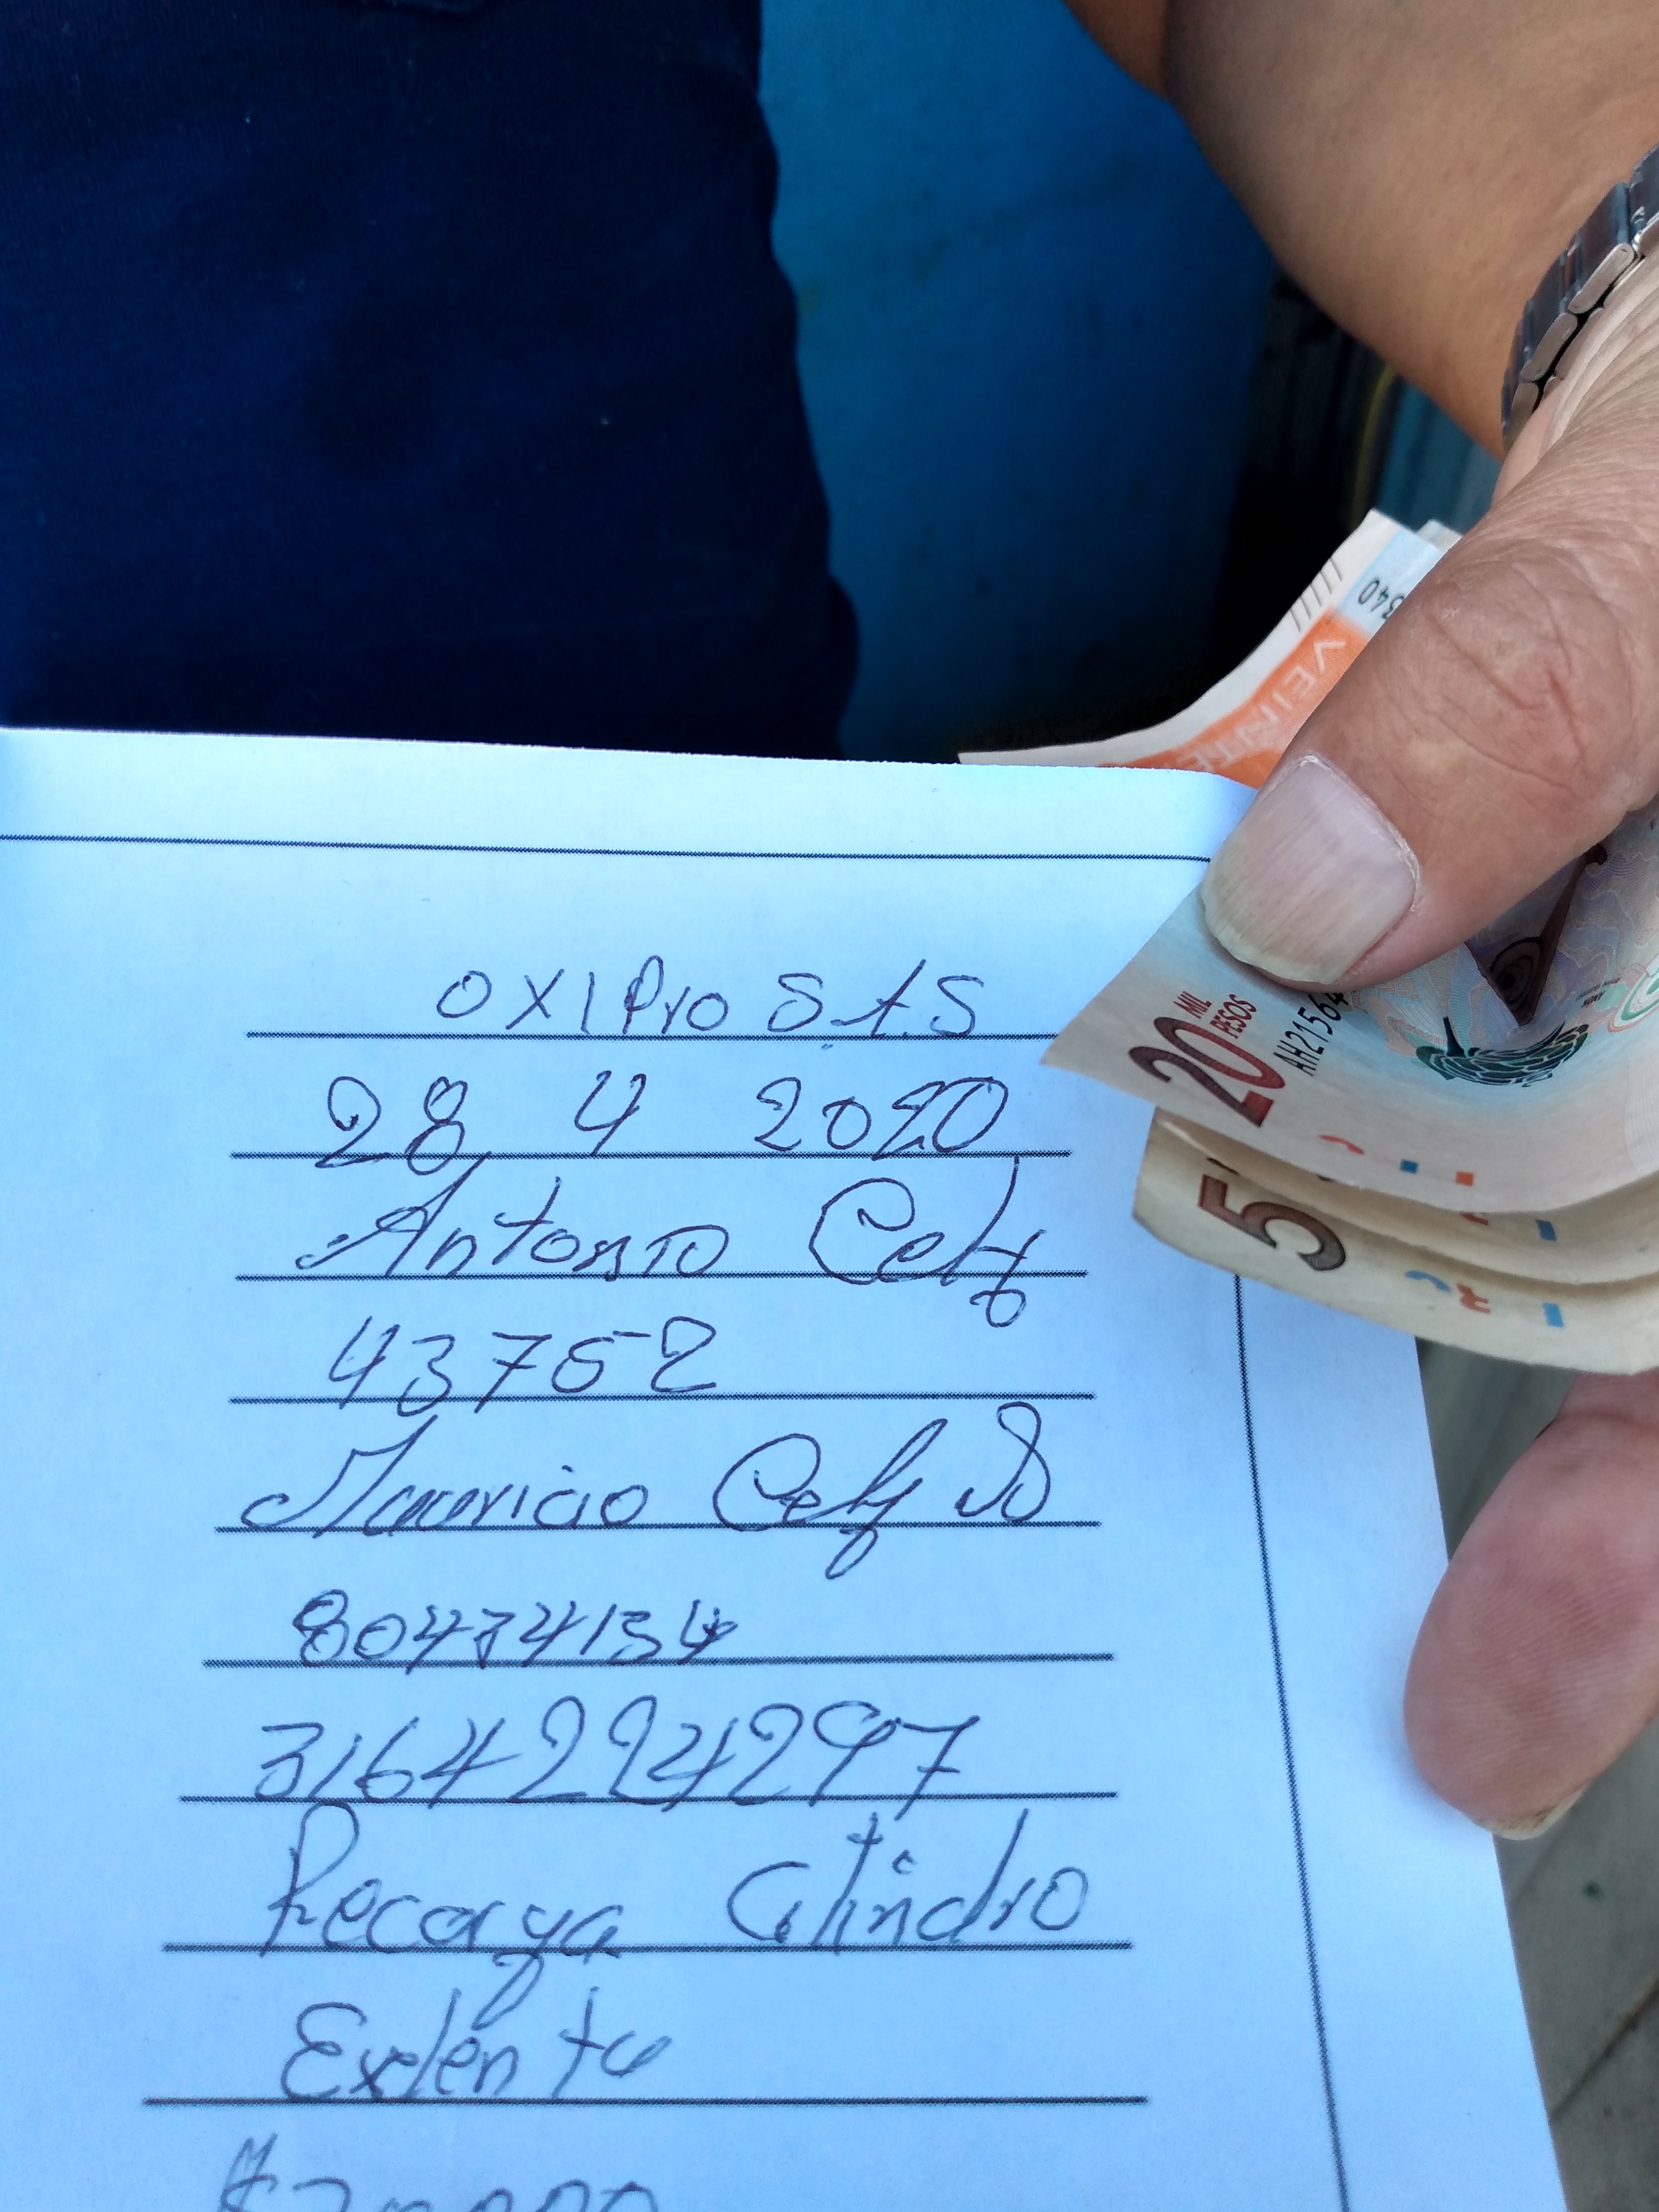 340
VEINTE
OXIPro S.A.S
20 MIL PESOS
AH21564
28 4 2020
5
Antonio Cely
43752
Mauricio Cely S
80474134
3164224297
Recarga Cilindro
Exlento